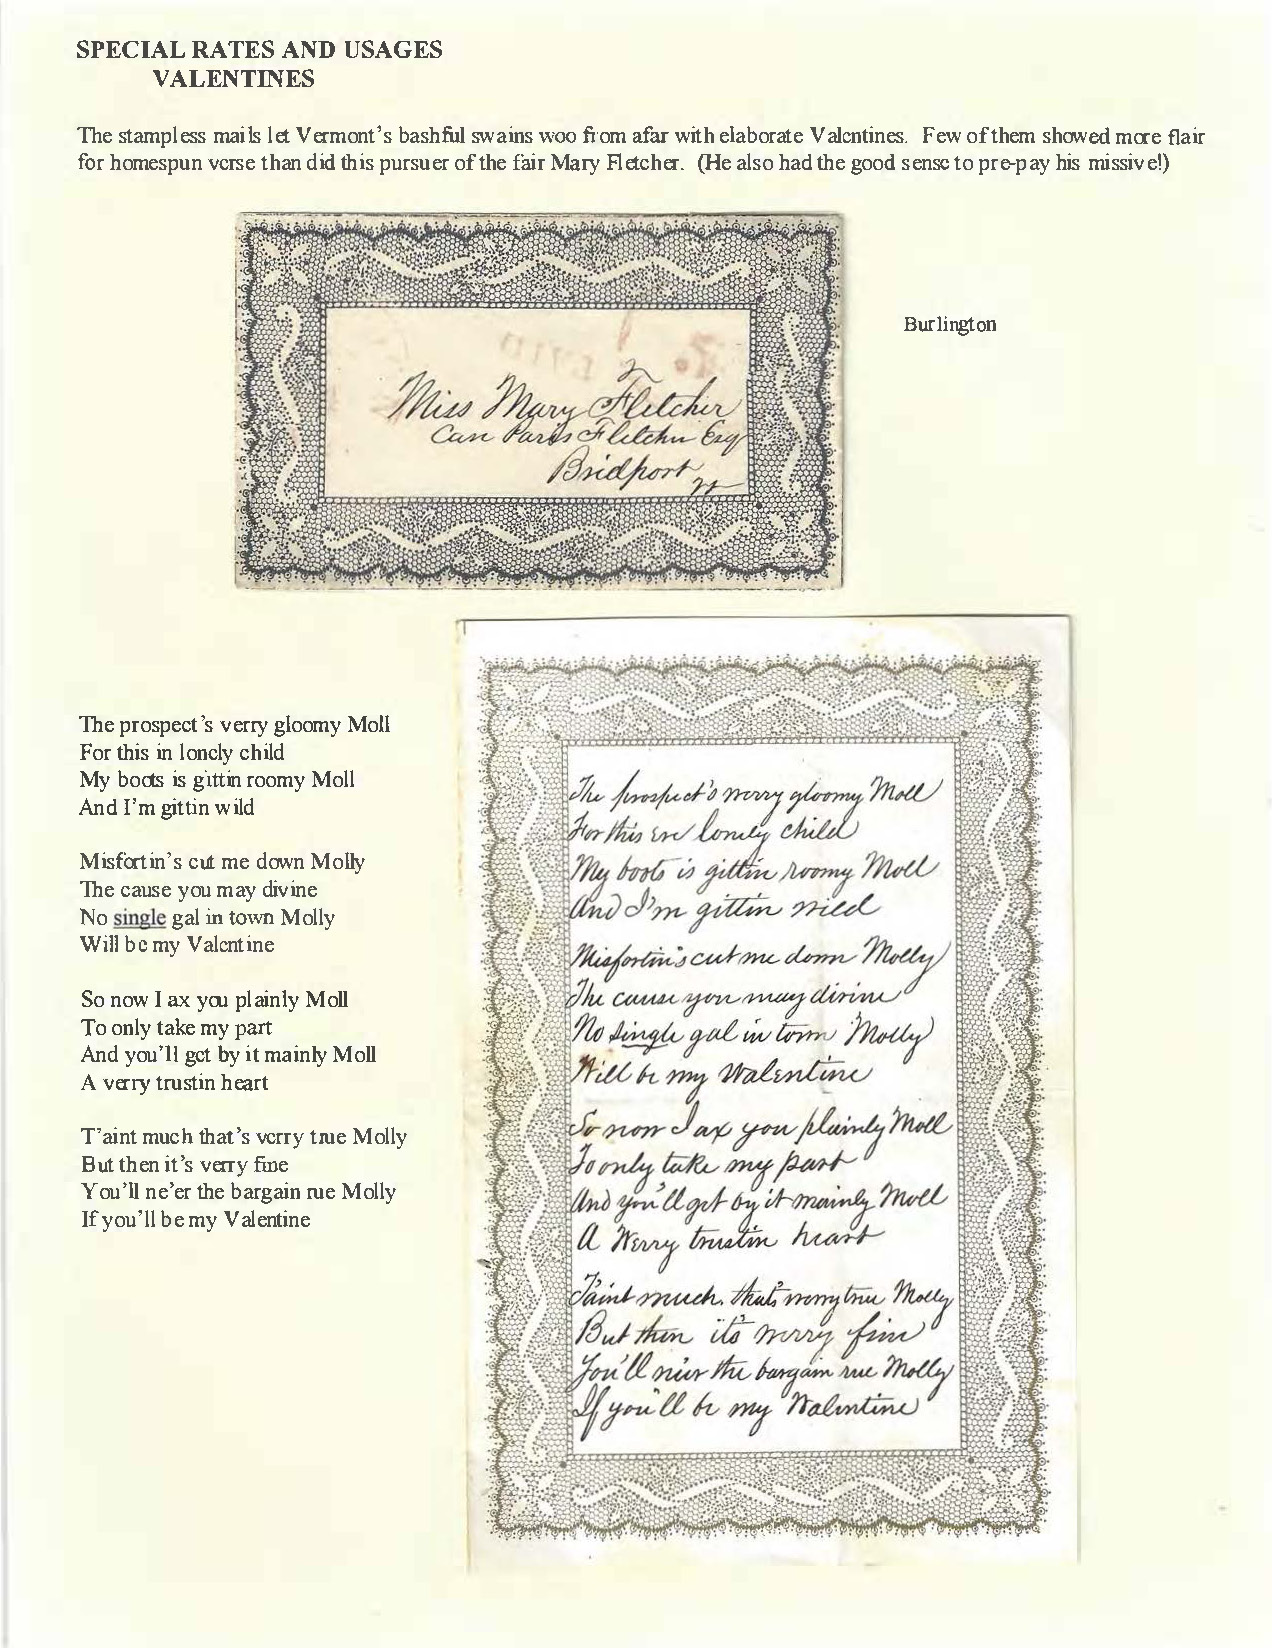 SPECIAL RATES AND USAGES
VALENTINES
The stampless mails let Vermont's bashful swains woo from afar with elaborate Valentines. Few of them showed more flair
for homespun verse than did this pursuer of the fair Mary Fletcher. (He also had the good sense to pre-pay his missive!)
Miss Mary Fletcher
Care Paris Fletcher Esq
Bridport
Vt
Burlington
The prospect's verry gloomy Moll
For this in lonely child
My boots is gittin roomy Moll
And I'm gittin wild
Misfortin's cut me down Molly
The cause you may divine
No single gal in town Molly
Will be my Valentine
So now I ax you plainly Moll
To only take my part
And you'll get by it mainly Moll
A verry trustin heart
T'aint much that's verry true Molly
But then it's verry fine
You'll ne'er the bargain rue Molly
If you'll be my Valentine
The prospect's werry gloomy Moll
For this ere lonely child
My boots is gittin roomy Moll
And I'm gittin wild
Misfortin's cut me down Molly
The cause you may divine
No single gal in town Molly
Will be my Walentine
So now I ax you plainly Moll
To only take my part
And you'll get by it mainly Moll
A Werry trustin heart
T'aint much, that's werry true Molly
But then it's werry fine
You'll ne'er the bargain rue Molly
If you'll be my Walentine